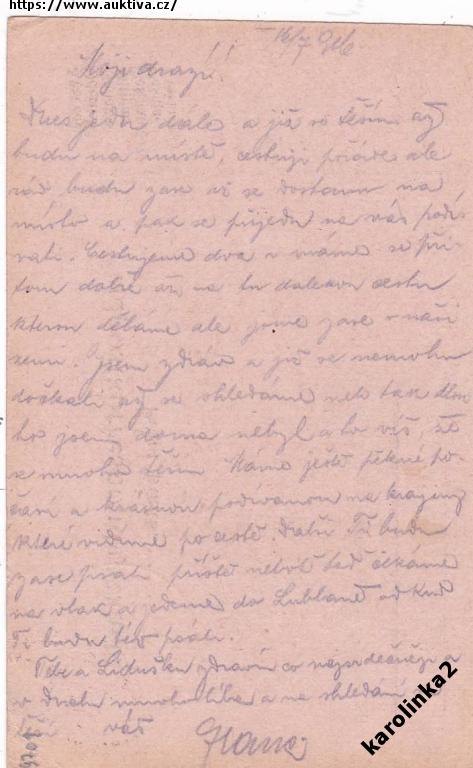 https://www.auktiva.cz/
16/7
Moji drazí!!
Dnes jedu dále a již se těším až
budu na místě, cestuji pořáde ale
rád budu zase až se dostanu na
místo a pak se přijedu na vás podí
vati. Cestujeme dva a máme se při
tom dobře až na tu dalekou cestu
kterou děláme ale jsme zase v naší
zemi. Jsem zdráv a již se nemohu
dočkati až se shledáme neb tak dlou
ho jsem doma nebyl a to víš, že
se mnoho těším. Máme ještě pěkné po
časí a krásnou podívanou na krajiny
které vidíme po cestě. Další Ti budu
zase psáti příště neboť teď čekáme
na vlak a jedeme do Lublaně odkud
Ti budu též psáti.
Tebe a Lidušku zdravím co nejsrdečněji a
v duchu mnoho líbá a na shledání
váš
karolinka2